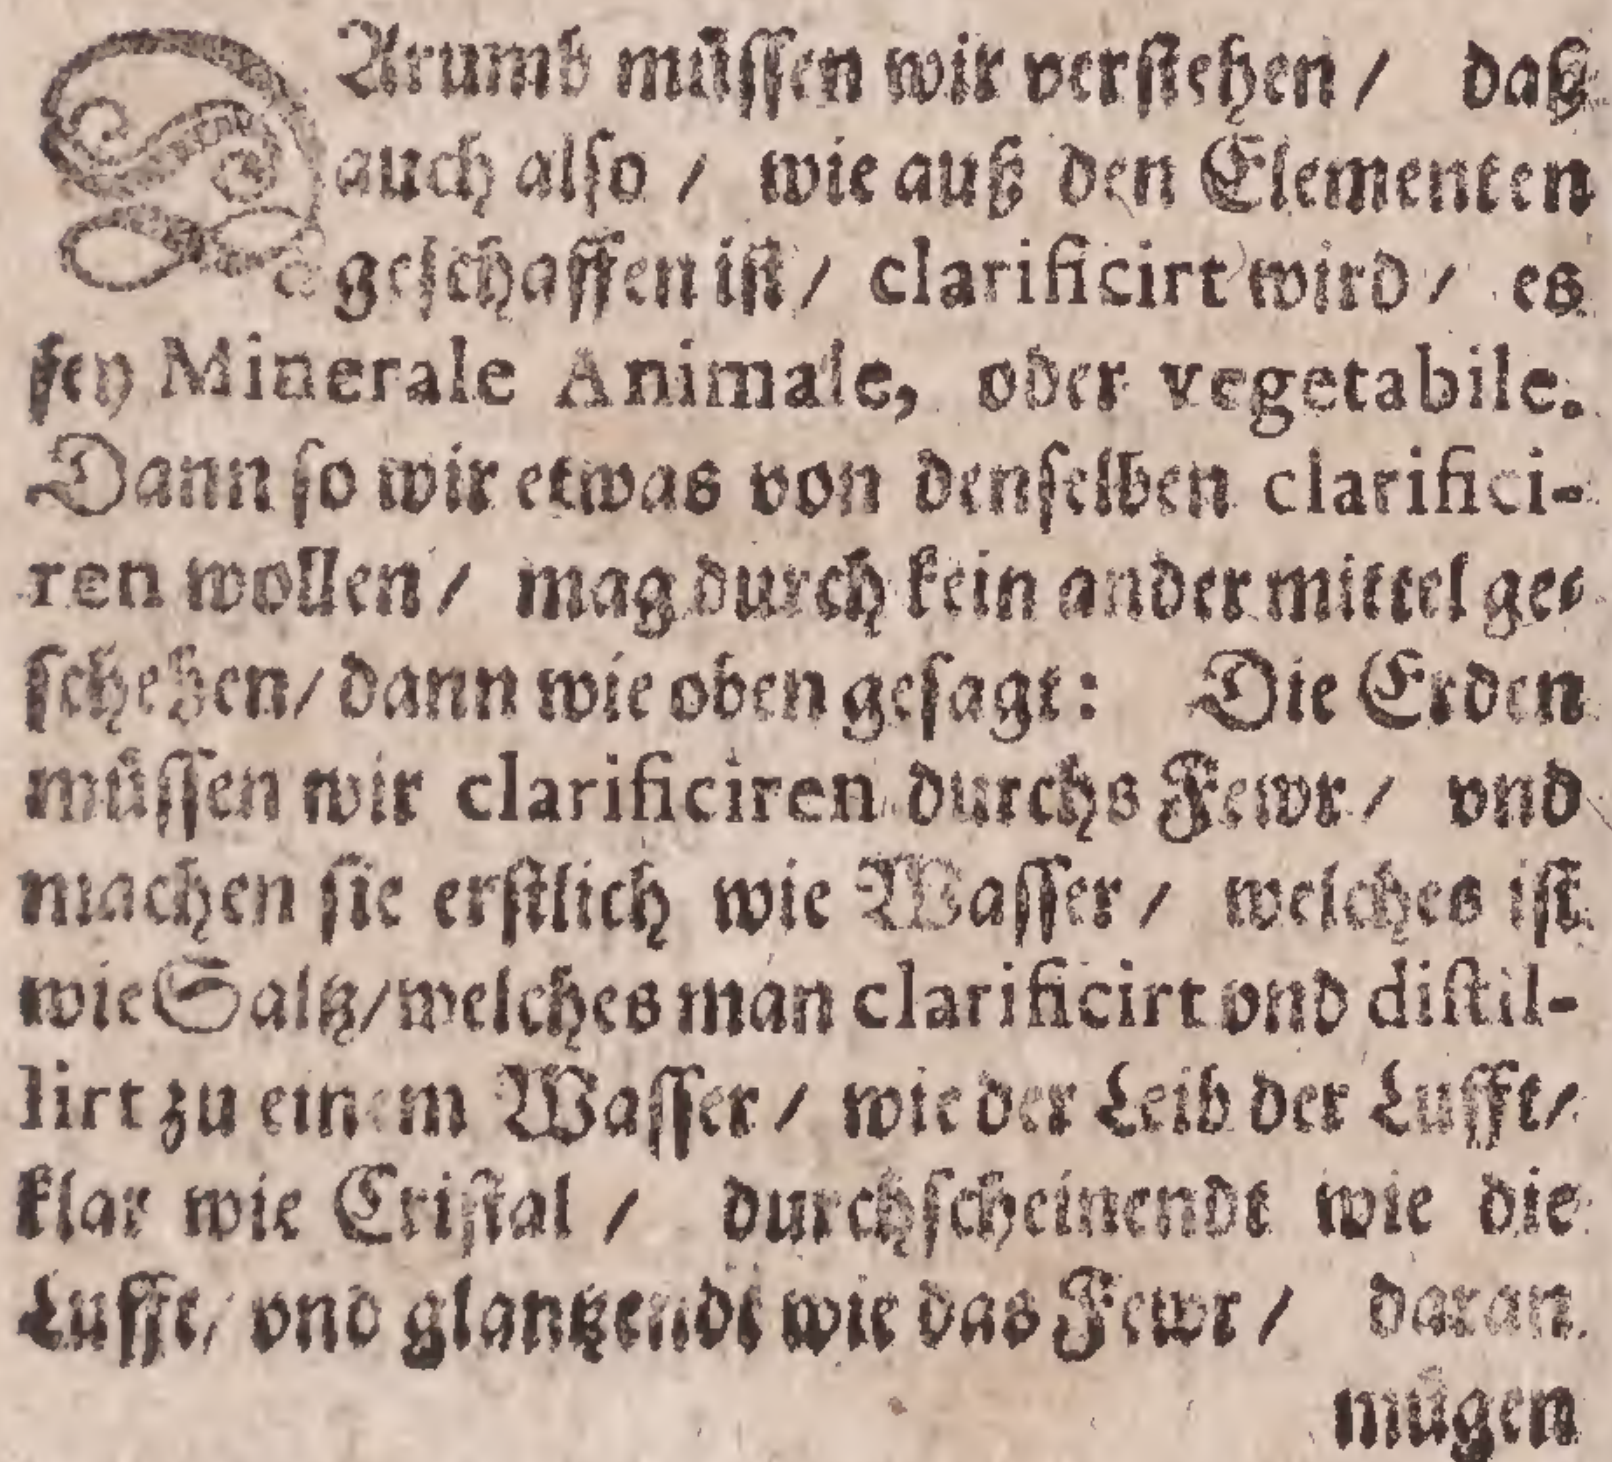 DArumb müssen wir verstehen / daß
auch also / wie auß den Elementen
geschaffen ist / clarificirt wird / es
sey Minerale Animale, oder vegetabile.
Dann so wir etwas von denselben clarifici-
ren wollen / mag durch kein ander mittel ge-
schehen / dann wie oben gesagt: Die Erden
müssen wir clarificiren durchs Fewr / vnd
machen sie erstlich wie Wasser / welches ist
wie Saltz / welches man clarificirt vnd distil-
lirt zu einem Wasser / wie der Leib der Lufft /
klar wie Cristal / durchscheinendt wie die
Lufft / vnd glantzendt wie das Fewr / daran
mügen